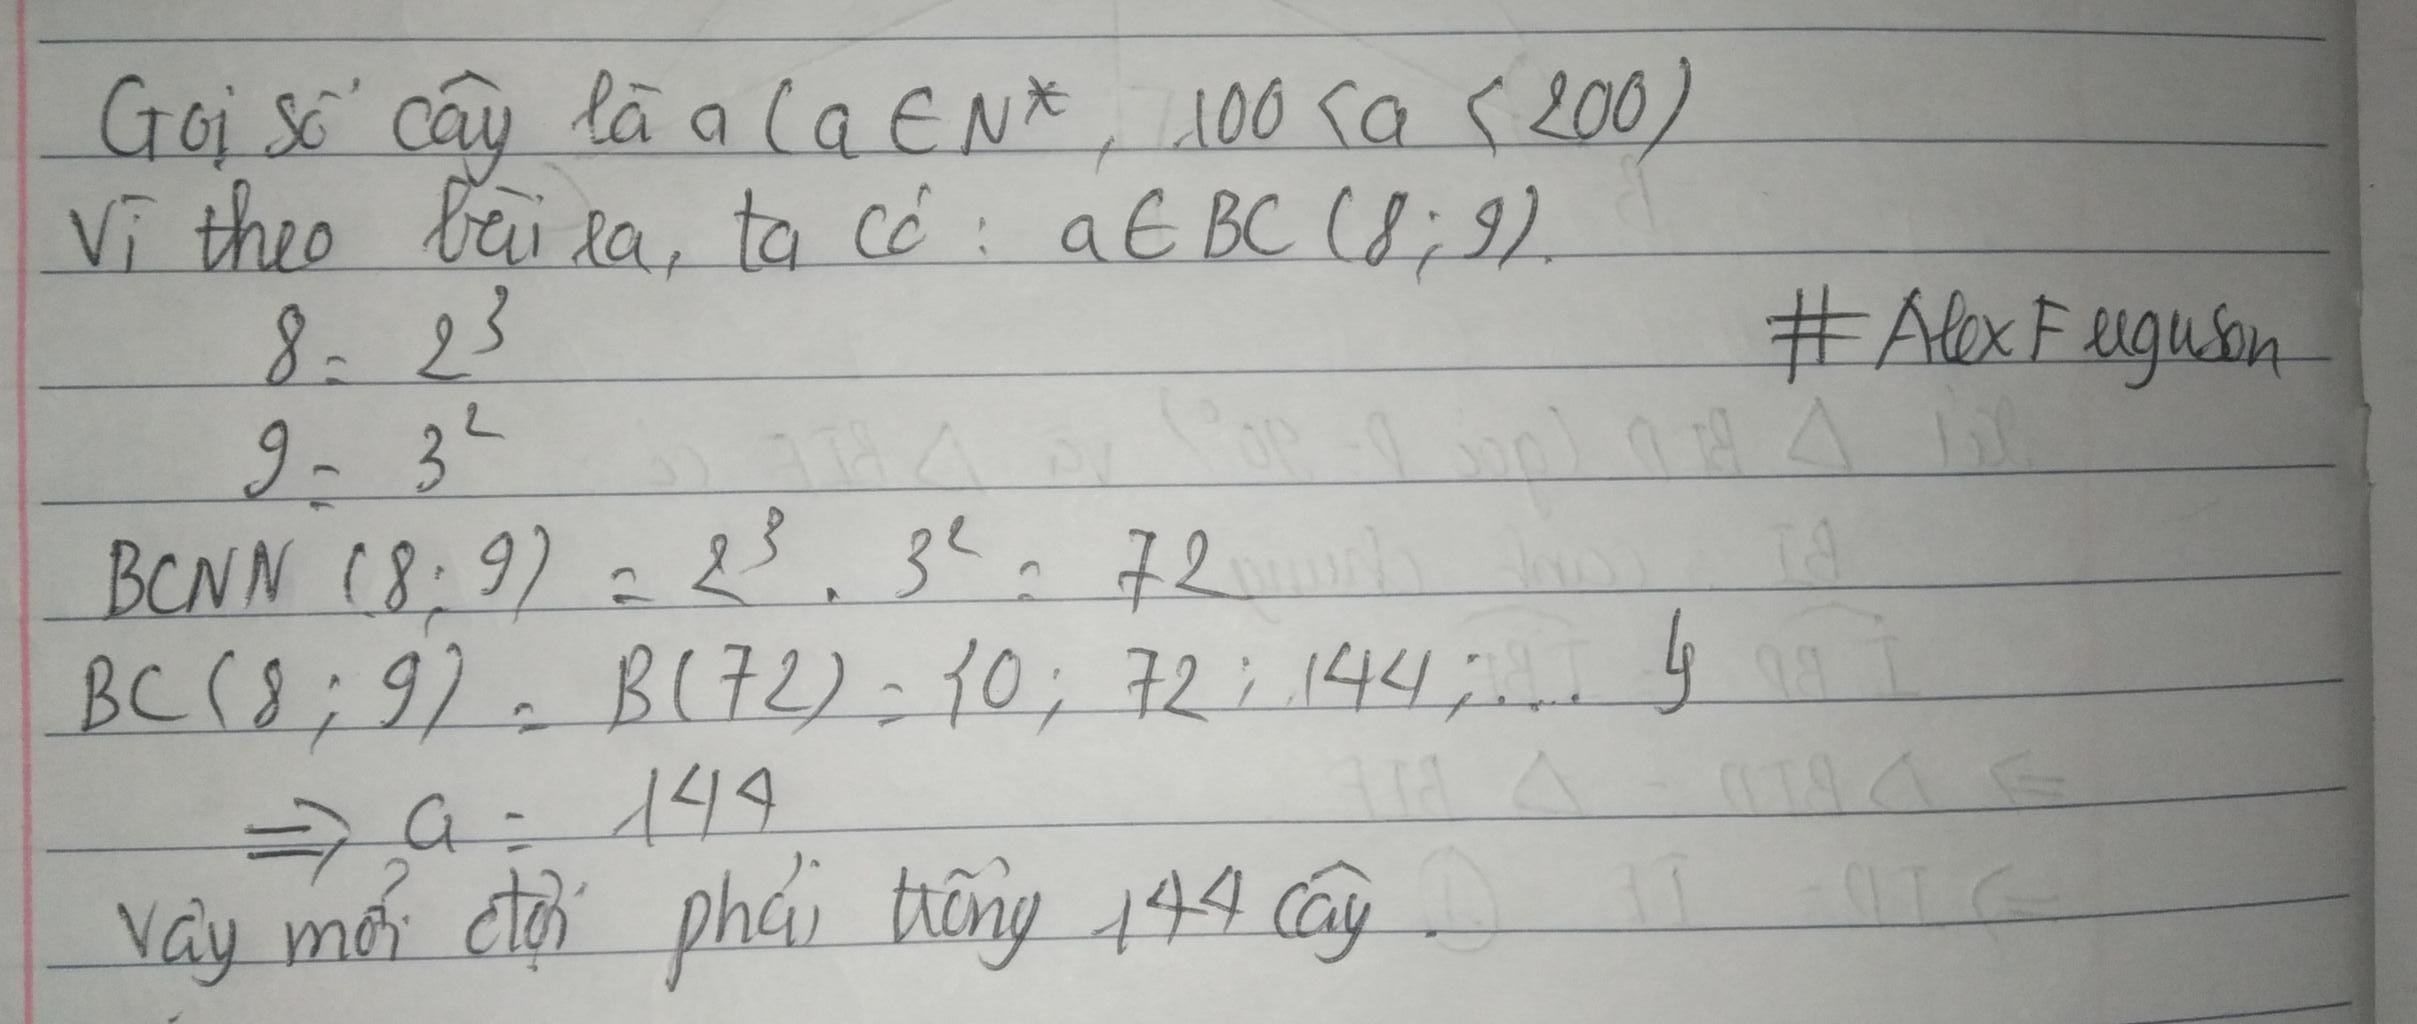 Gọi số cây là a (a ∈ N*, 100 < a < 200)
Vì theo bài ra, ta có: a ∈ BC (8; 9).
8 = 2³
#AlexFerguson
9 = 3²
BCNN (8; 9) = 2³ . 3² = 72
BC (8; 9) = B(72) = {0; 72; 144; .... }
⇒ a = 144
Vậy mỗi đội phải trồng 144 cây.